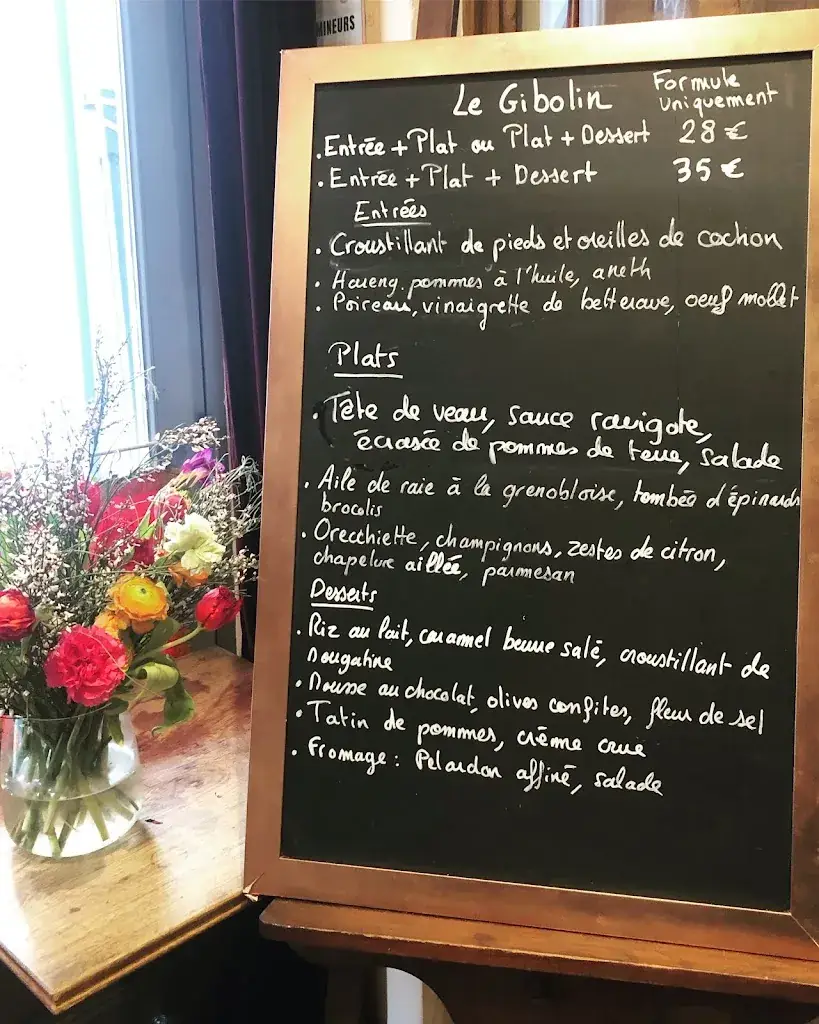 MINEURS
Le Gibolin
Formule
Uniquement
. Entrée + Plat ou Plat + Dessert 28 €
. Entrée + Plat + Dessert 35 €
Entrées
. Croustillant de pieds et oreilles de cochon
. Hareng. pommes à l'huile, aneth
. Poireau, vinaigrette de betterave, oeuf mollet
Plats
. Tête de veau, sauce ravigote,
écrasée de pommes de terre, salade
. Aile de raie à la grenobloise, tombée d'épinards
brocolis
. Orecchiette, champignons, zestes de citron,
chapelure aillée, parmesan
Desserts
. Riz au lait, caramel beurre salé, croustillant de
nougatine
. Mousse au chocolat, olives confites, fleur de sel
. Tatin de pommes, crème crue
. Fromage : Pelardon affiné, salade